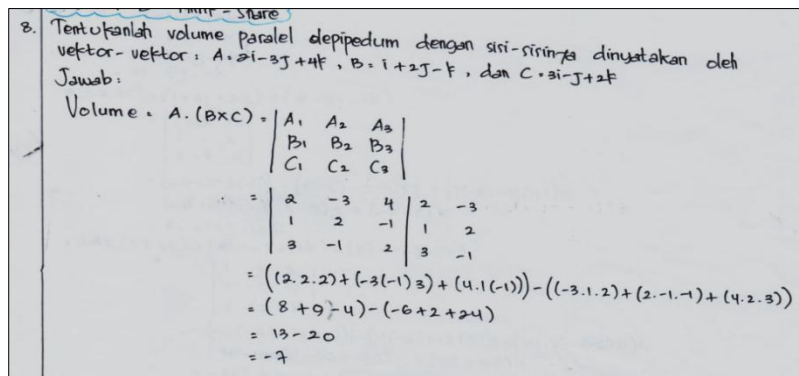 Think-Share
8. Tentukanlah volume paralel depipedum dengan sisi-sisinya dinyatakan oleh
vektor-vektor : A = 2i-3j+4k, B = i+2j-k, dan C = 3i-j+2k
Jawab :
Volume = A. (B×C) = | A₁ A₂ A₃ |
B₁ B₂ B₃
C₁ C₂ C₃
= | 2 -3 4 | 2 -3
1 2 -1 1 2
3 -1 2 3 -1
= ((2.2.2)+(-3(-1)3)+(4.1(-1)))-((-3.1.2)+(2.-1.-1)+(4.2.3))
= (8+9-4)-(-6+2+24)
= 13-20
= -7